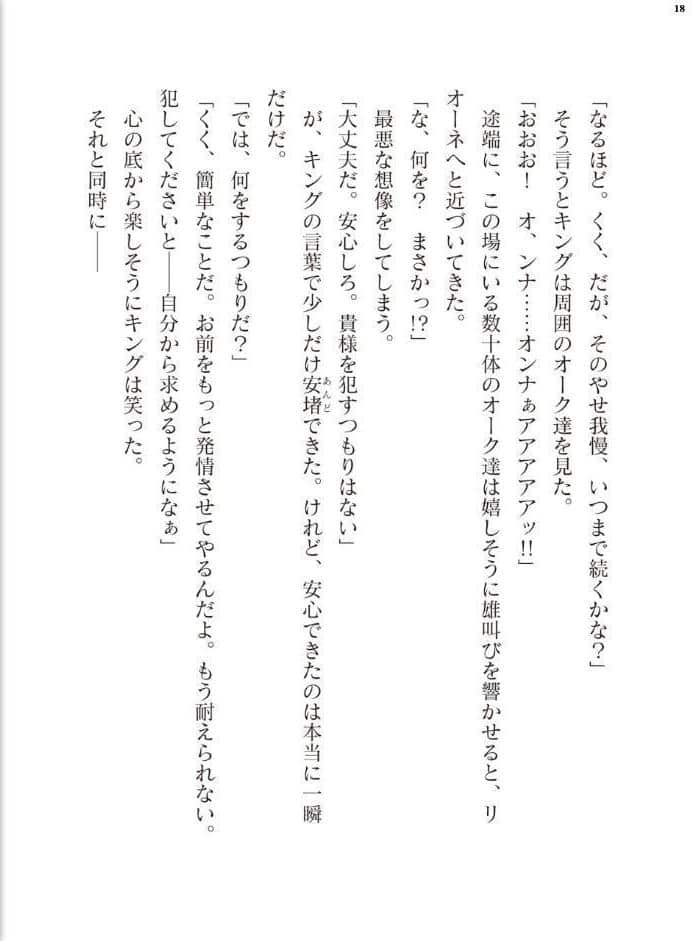 18
「なるほど。くく、だが、そのやせ我慢、いつまで続くかな？」
そう言うとキングは周囲のオーク達を見た。
「おおお！　オ、ンナ……オンナぁアアアアアッ!!」
途端に、この場にいる数十体のオーク達は嬉しそうに雄叫びを響かせると、リ
オーネへと近づいてきた。
「な、何を？　まさかっ!?」
最悪な想像をしてしまう。
「大丈夫だ。安心しろ。貴様を犯すつもりはない」
が、キングの言葉で少しだけ安堵できた。けれど、安心できたのは本当に一瞬
あんど
だけだ。
「では、何をするつもりだ？」
「くく、簡単なことだ。お前をもっと発情させてやるんだよ。もう耐えられない。
犯してくださいと――自分から求めるようになぁ」
心の底から楽しそうにキングは笑った。
それと同時に――